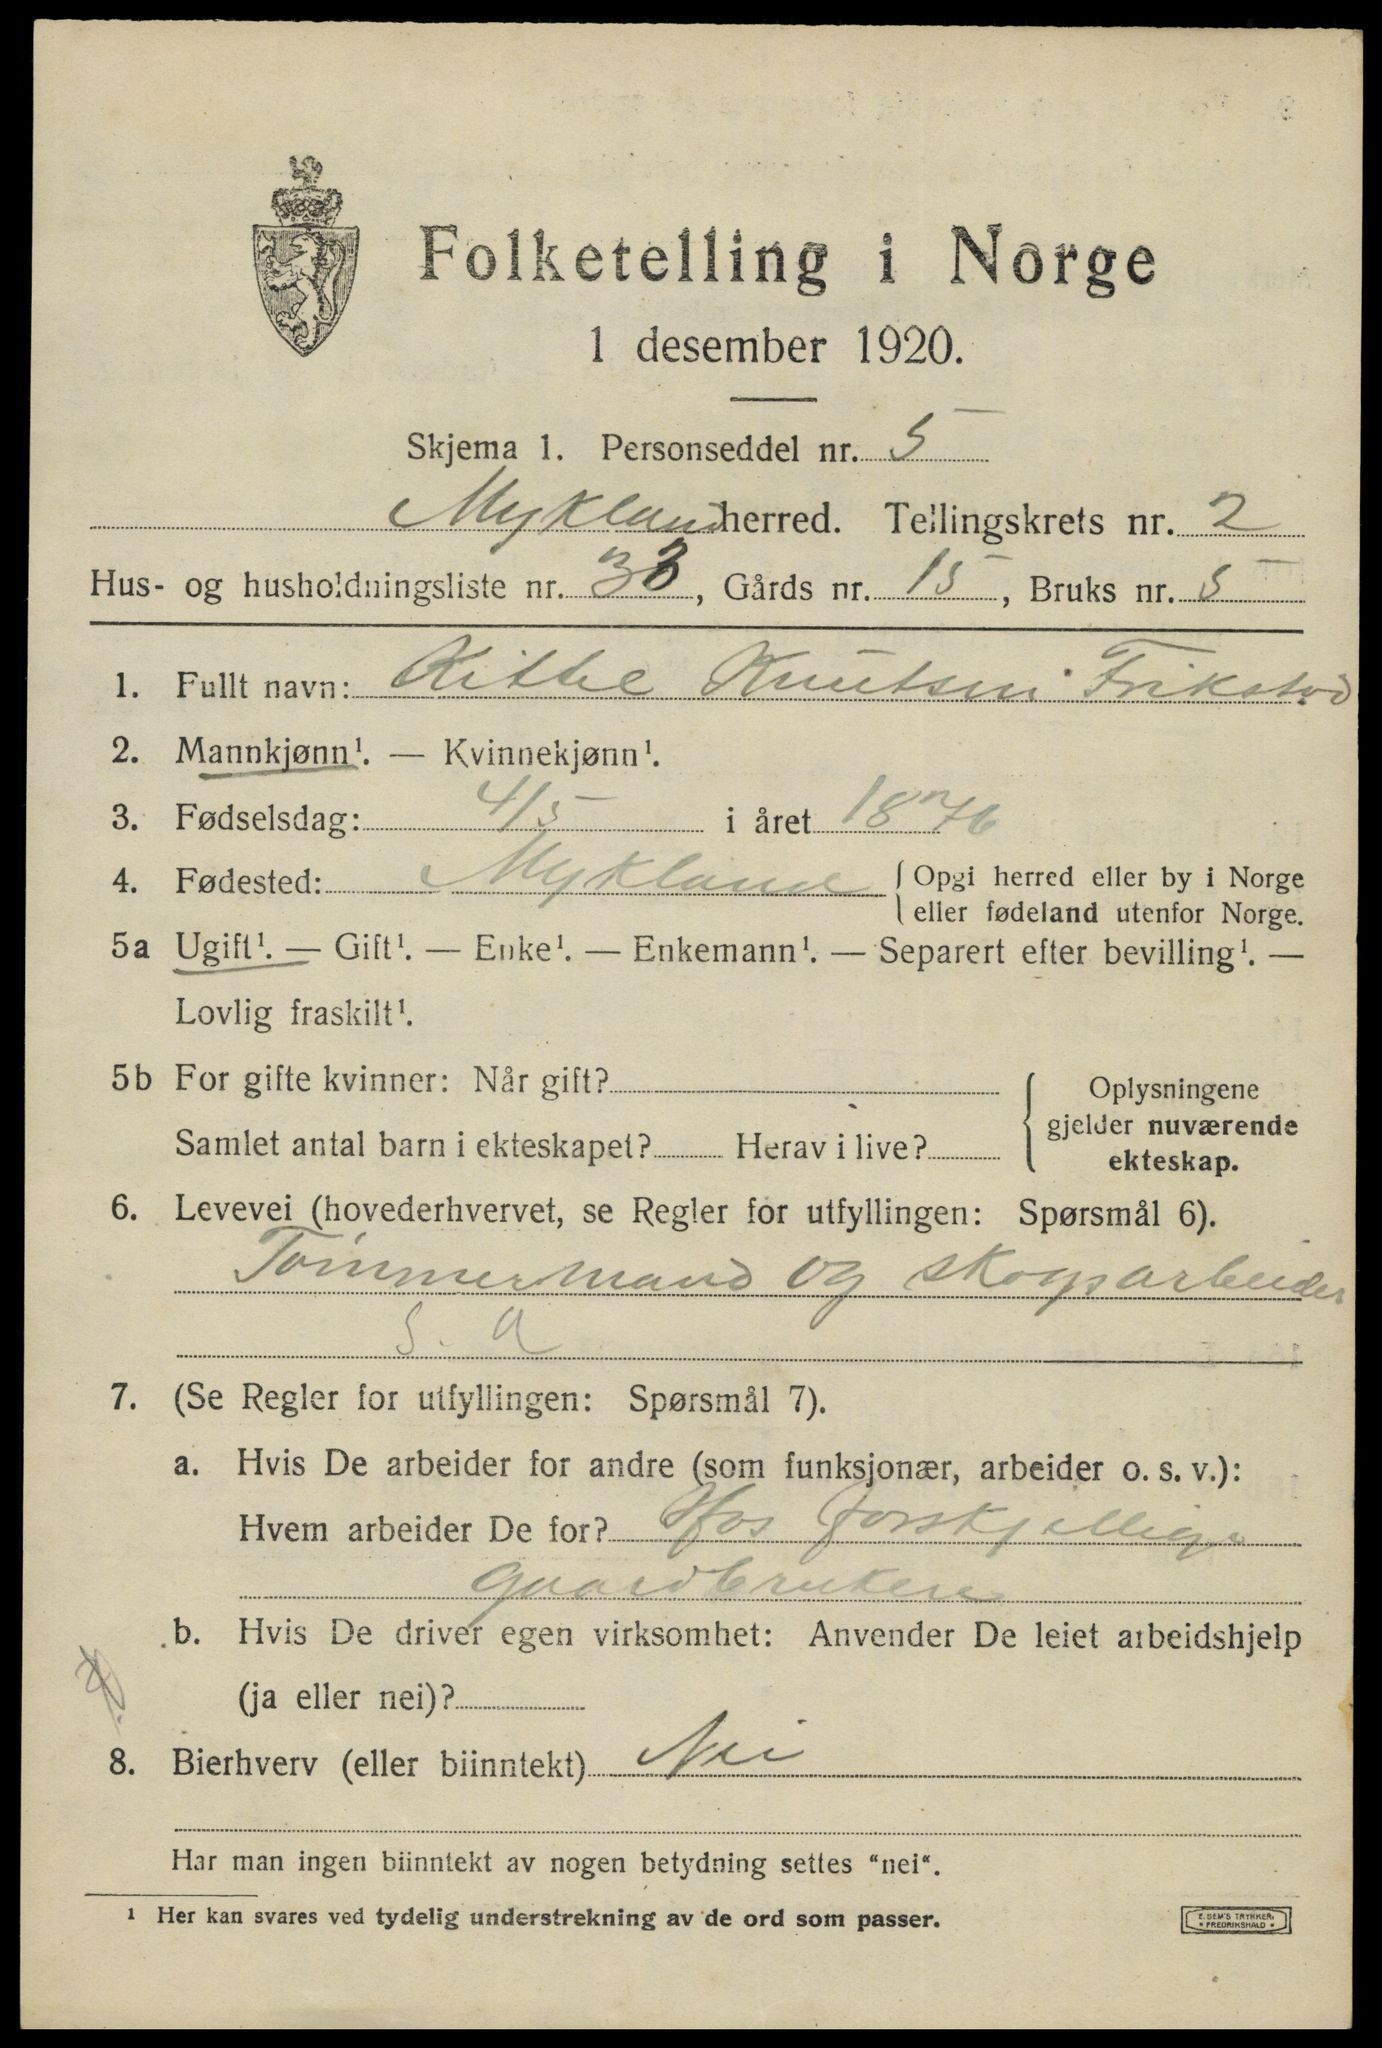 Folketelling i Norge
1 desember 1920.
Skjema 1. Personseddel nr. 5
Mykland herred. Tellingskrets nr. 2
Hus- og husholdningsliste nr. 33, Gårds nr. 15, Bruks nr. 5
1. Fullt navn: Kittel Knutsen Frikstad
2. Mannkjønn¹. — Kvinnekjønn¹.
3. Fødselsdag: 4/5 i året 1876
4. Fødested: Mykland {Opgi herred eller by i Norge
eller fødeland utenfor Norge.
5a Ugift¹. — Gift¹. — Enke¹. — Enkemann¹. — Separert efter bevilling¹. —
Lovlig fraskilt¹.
5b For gifte kvinner: Når gift?
Samlet antal barn i ekteskapet? Herav i live?
{Oplysningene
gjelder nuværende
ekteskap.
6. Levevei (hovederhvervet, se Regler for utfyllingen: Spørsmål 6).
Tømmermand og skogsarbeider
S. A
7. (Se Regler for utfyllingen: Spørsmål 7).
a. Hvis De arbeider for andre (som funksjonær, arbeider o. s. v.):
Hvem arbeider De for? Hos forskjellige
gaardbrukere
b. Hvis De driver egen virksomhet: Anvender De leiet arbeidshjelp
(ja eller nei)?
8. Bierhverv (eller biinntekt) Nei
Har man ingen biinntekt av nogen betydning settes "nei".
¹ Her kan svares ved tydelig understrekning av de ord som passer.
E. SEM'S TRYKKERI
FREDRIKSHALD